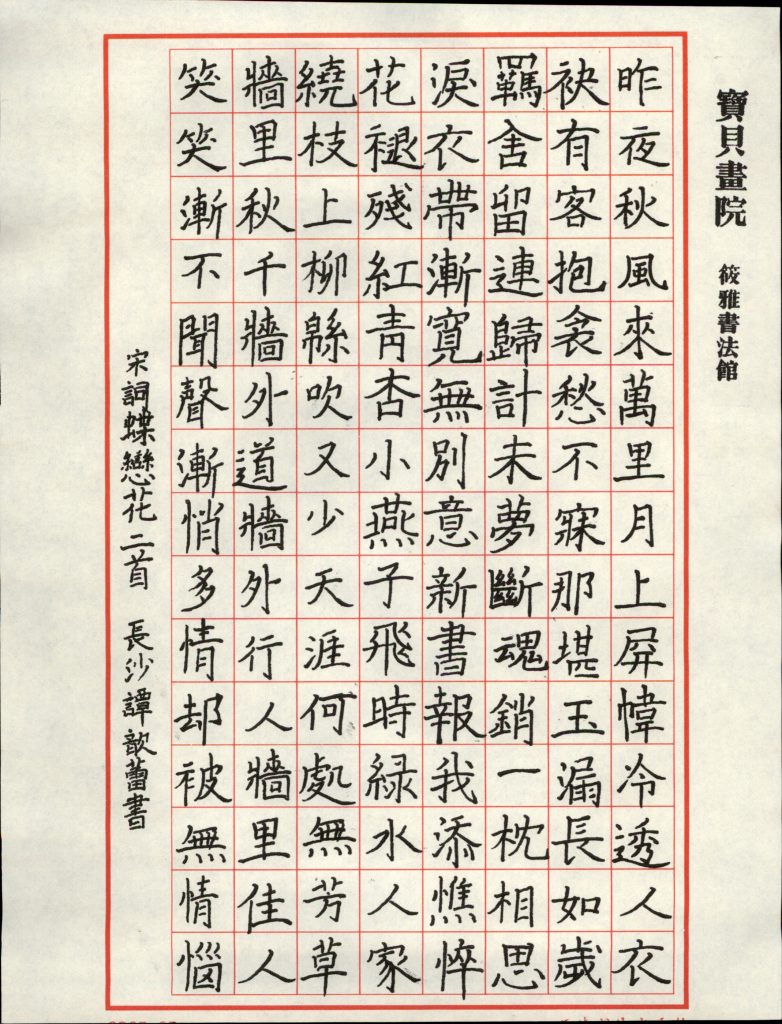 寶貝畫院 筱雅書法館
昨夜秋風來萬里月上屏幃冷透人衣
袂有客抱衾愁不寐那堪玉漏長如歲
羈舍留連歸計未夢斷魂銷一枕相思
淚衣帶漸寬無別意新書報我添憔悴
花褪殘紅青杏小燕子飛時緑水人家
繞枝上柳緜吹又少天涯何處無芳草
牆里秋千牆外道牆外行人牆里佳人
笑笑漸不聞聲漸悄多情却被無情惱
宋詞蝶戀花二首 長沙譚歆蕾書